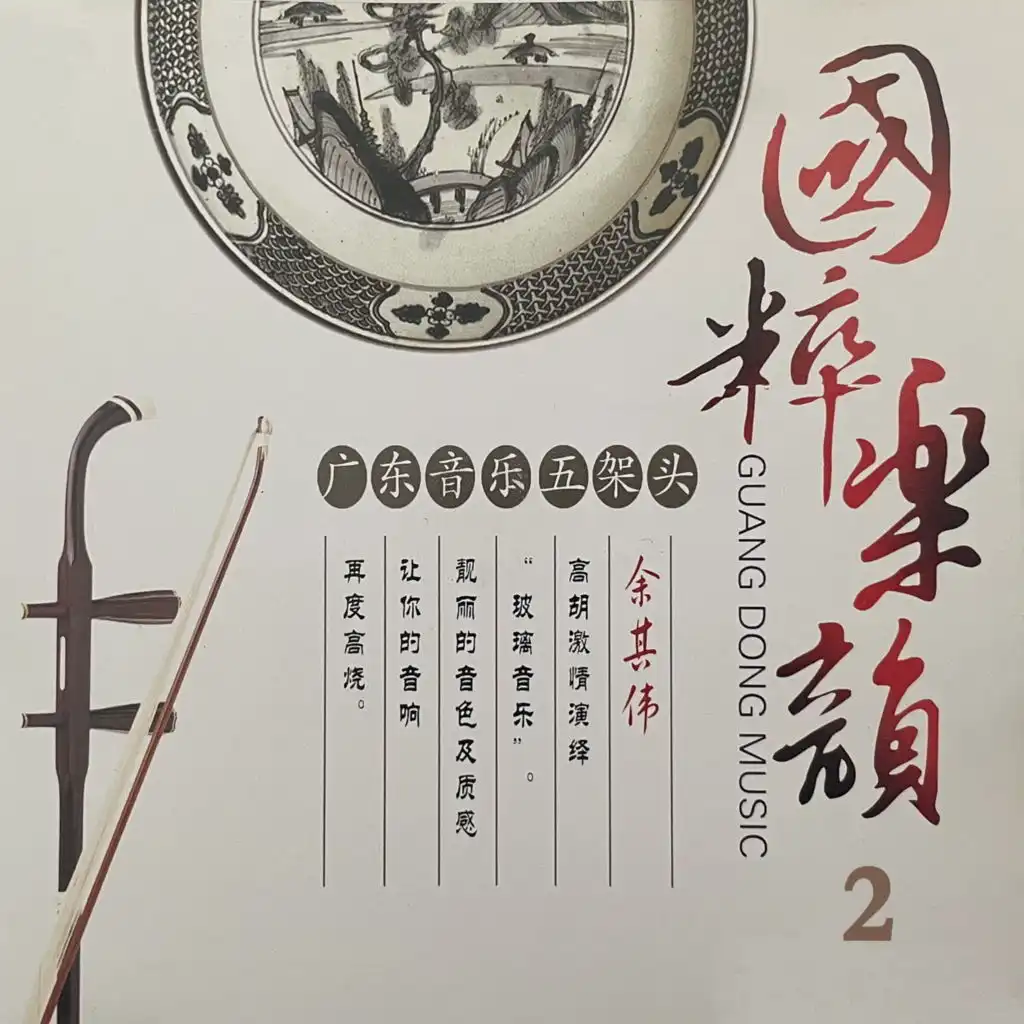 國粹樂韻
GUANG DONG MUSIC
2
广东音乐五架头
余其伟
高胡激情演绎
“玻璃音乐”。
靓丽的音色及质感
让你的音响
再度高烧。